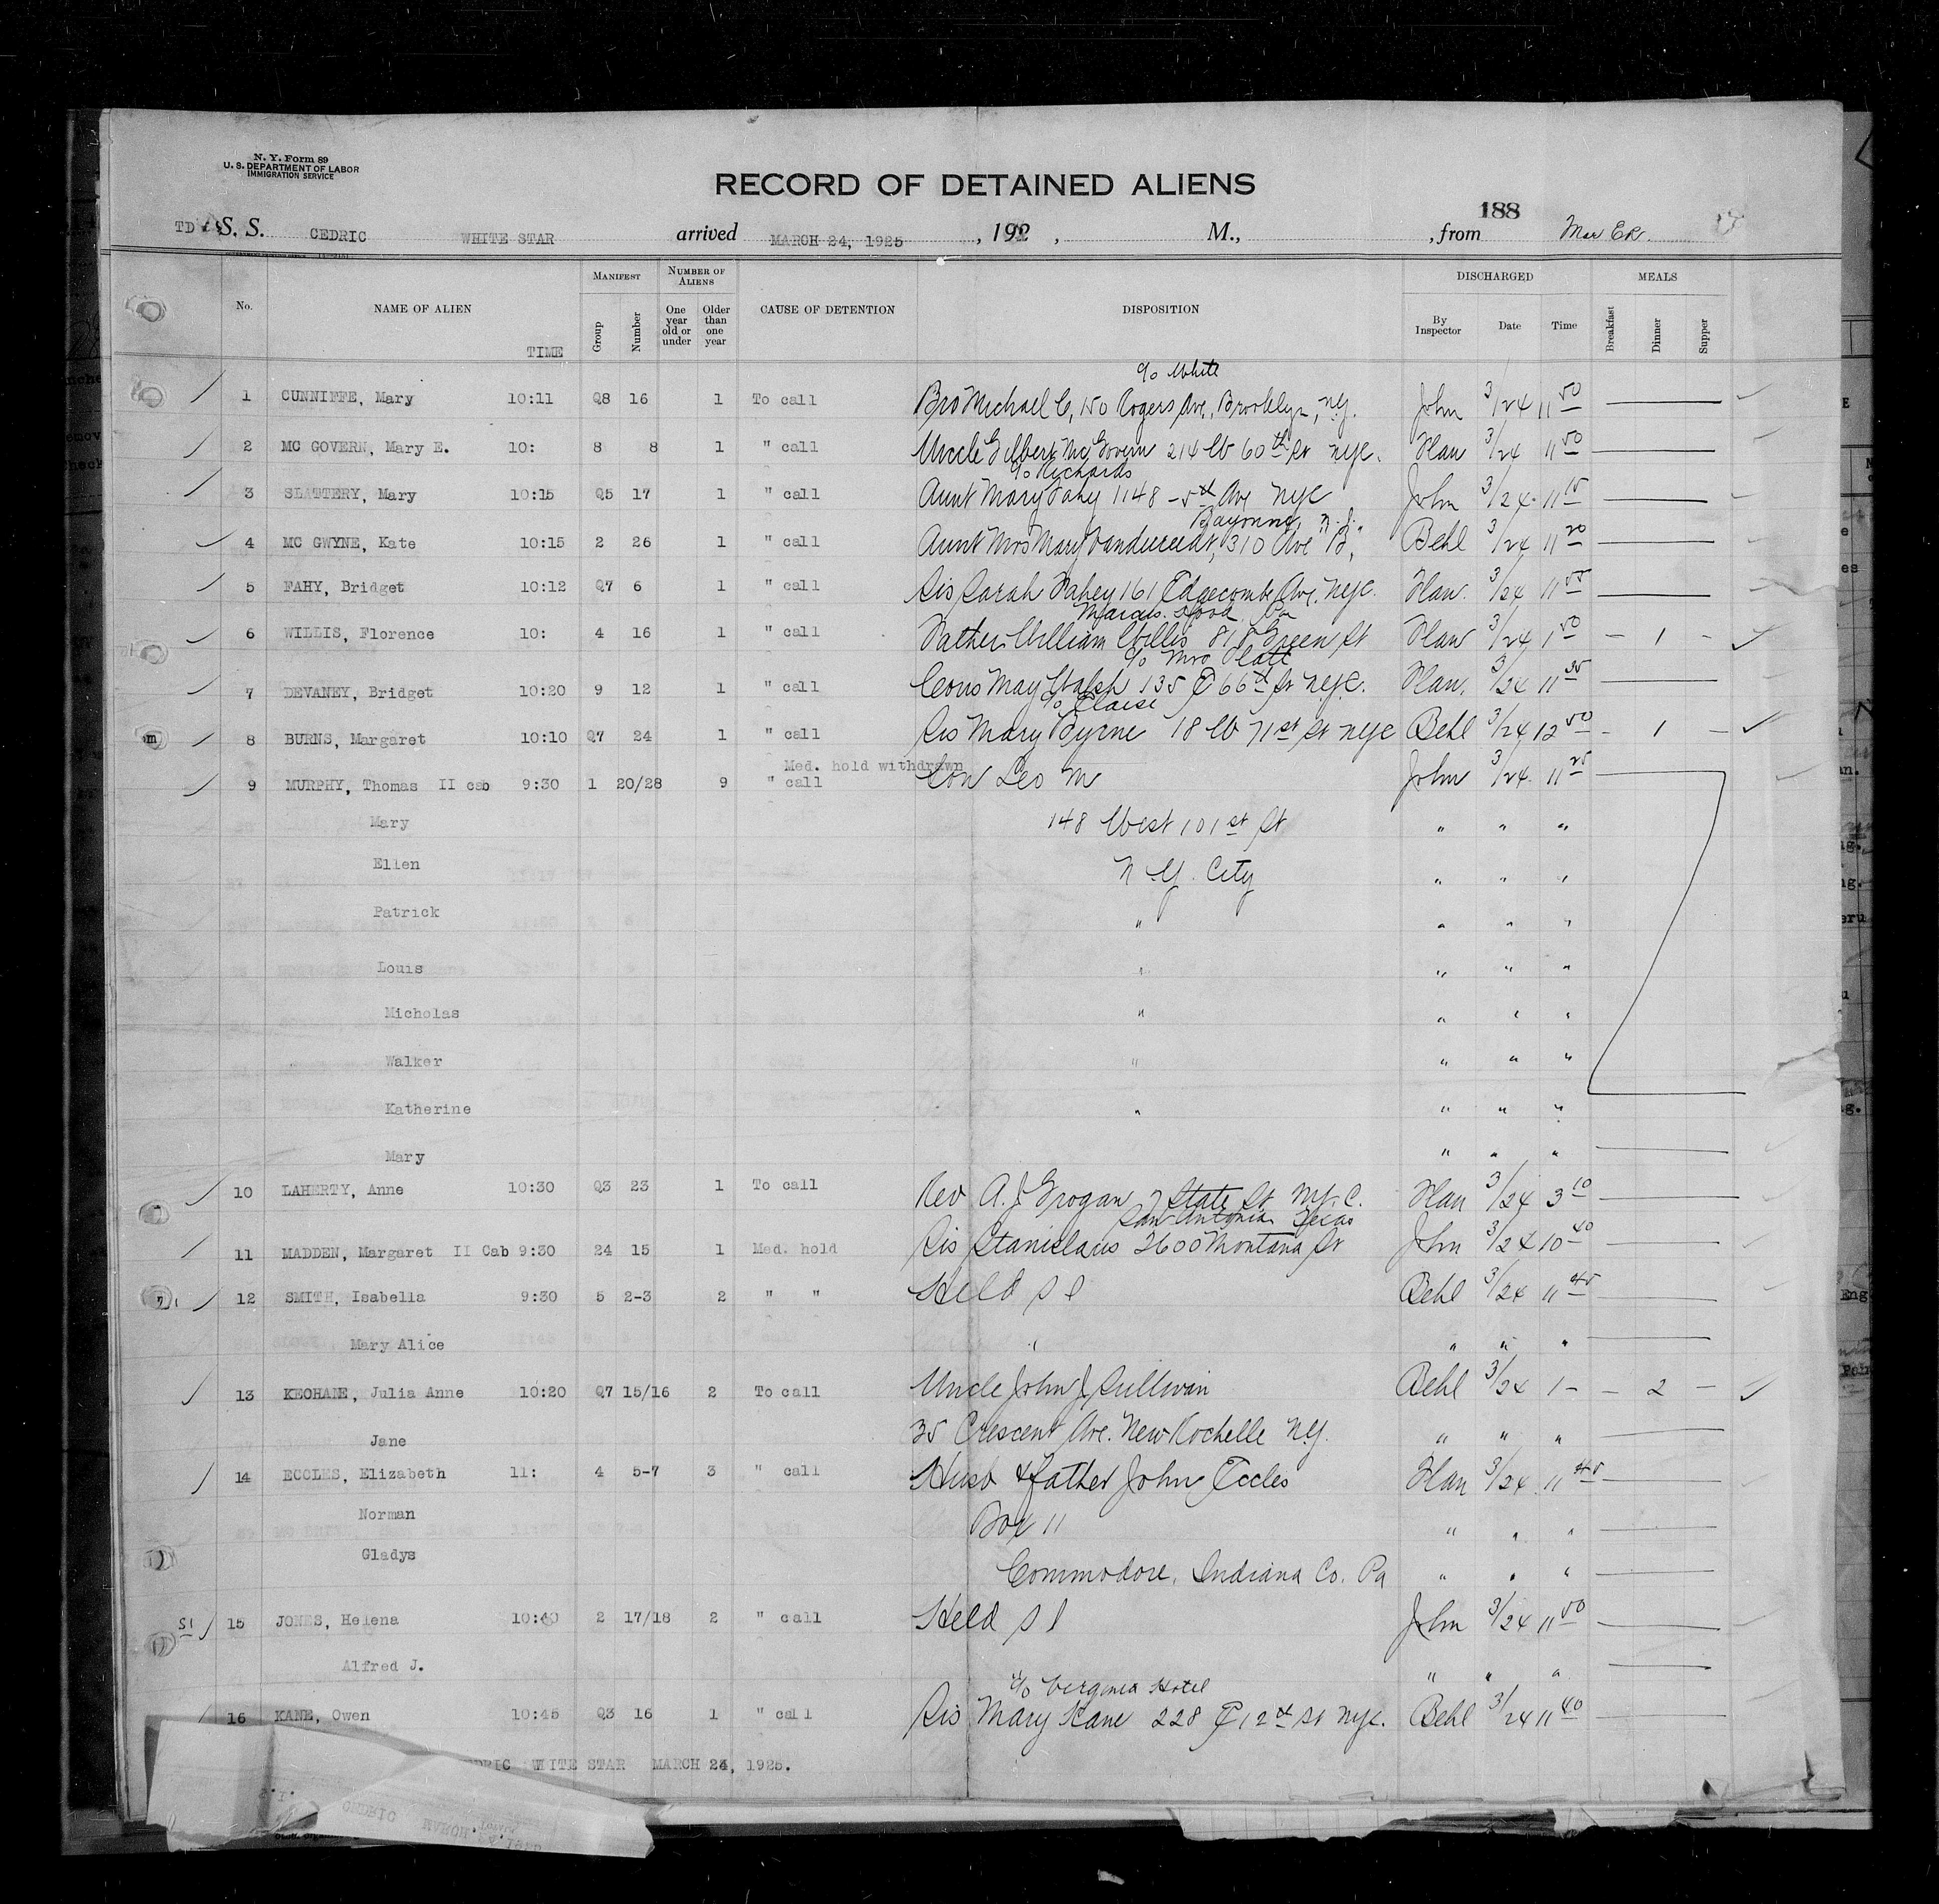 N. Y. Form 89
U. S. DEPARTMENT OF LABOR
IMMIGRATION SERVICE
RECORD OF DETAINED ALIENS
188
TD S. S. CEDRIC WHITE STAR arrived MARCH 24, 1925 , 192 , M., , from
No. NAME OF ALIEN TIME MANIFEST Group Number NUMBER OF ALIENS One year old or under Older than one year CAUSE OF DETENTION DISPOSITION DISCHARGED By Inspector Date Time MEALS Breakfast Dinner Supper
c/o White
1 CUNNIFFE, Mary 10:11 Q8 16 1 To call Bro Michael C, 150 Rogers Ave, Brooklyn, N.Y. John 3/24 11 50
2 MC GOVERN, Mary E. 10: 8 8 1 " call Uncle Gilbert McGovern 214 W 60th St NYC. Han 3/24 11 50
c/o Richards
3 SLATTERY, Mary 10:15 Q5 17 1 " call Aunt Mary Fahy 1148 - 5th Ave NYC John 3/24 11 15
Bayonne, N.J.
4 MC GWYNE, Kate 10:15 2 26 1 " call Aunt Mrs Mary 310 Ave "B" Behl 3/24 11 20
5 FAHY, Bridget 10:12 Q7 6 1 " call Sis Sarah Fahey 161 Edgecombe Ave. NYC. Han. 3/24 11 55
Marcus Hook Pa
6 WILLIS, Florence 10: 4 16 1 " call Father William Willis 818 Green St Han 3/24 1 50 - 1 -
c/o Mrs Platt
7 DEVANEY, Bridget 10:20 9 12 1 " call Cous May Walsh 135 E 66th St NYC. Han. 3/24 11 35
c/o
8 BURNS, Margaret 10:10 Q7 24 1 " call Sis Mary Byrne 18 W 71st St NYC Behl 3/24 12 50 - 1 -
Med. hold withdrawn
9 MURPHY, Thomas II cab 9:30 1 20/28 9 " call Son Leo M John 3/24 11 25
Mary 148 West 101st St " " "
Ellen N.Y. City " " "
Patrick " " " "
Louis " " " "
Micholas " " " "
Walker " " " "
Katherine " " " "
Mary " " "
10 LAHERTY, Anne 10:30 Q3 23 1 To call Rev A. J. Grogan 7 State St NY. C. Han 3/24 3 10
San Antonio Texas
11 MADDEN, Margaret II Cab 9:30 24 15 1 Med. hold Sis Stanislaus 2600 Montana St John 3/24 10 40
12 SMITH, Isabella 9:30 5 2-3 2 " " Held S I Behl 3/24 11 45
Mary Alice " " " "
13 KEOHANE, Julia Anne 10:20 Q7 15/16 2 To call Uncle John J. Sullivan Behl 3/24 1 - - 2 -
Jane 35 Crescent Ave. New Rochelle N.Y. " " "
14 ECCLES, Elizabeth 11: 4 5-7 3 " call Husb & father John Eccles Han 3/24 11 45
Norman Box 11 " " "
Gladys Commodore, Indiana Co. Pa " " "
SI 15 JONES, Helena 10:40 2 17/18 2 " call Held S I John 3/24 11 50
Alfred J. " " "
c/o Verginia Hotel
16 KANE, Owen 10:45 Q3 16 1 " call Sis Mary Kane 228 E 12th St NYC. Behl 3/24 11 40
WHITE STAR MARCH 24, 1925.
CEDRIC